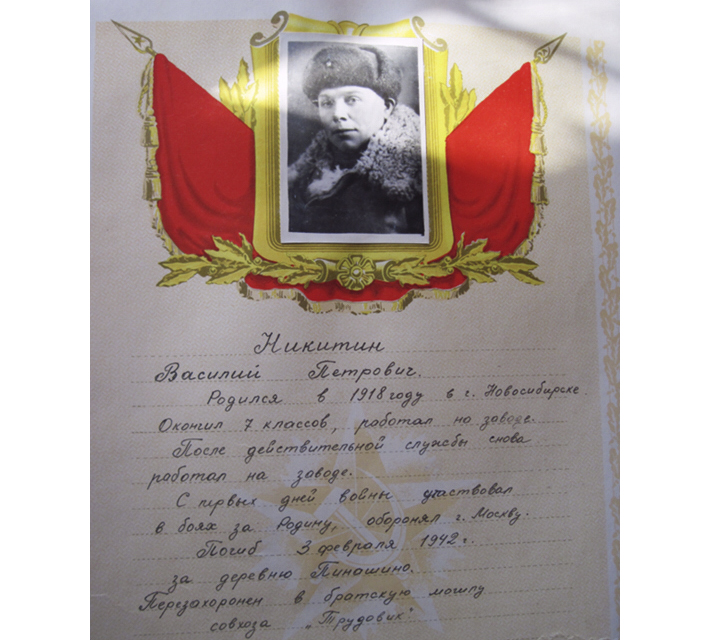 Никитин
Василий Петрович.
Родился в 1918 году в г. Новосибирске
Окончил 7 классов, работал на заводе.
После действительной службы снова
работал на заводе.
С первых дней войны участвовал
в боях за Родину, оборонял г. Москву.
Погиб 3 февраля 1942 г.
за деревню Пинашино.
Перезахоронен в братскую могилу
совхоза „Трудовик".